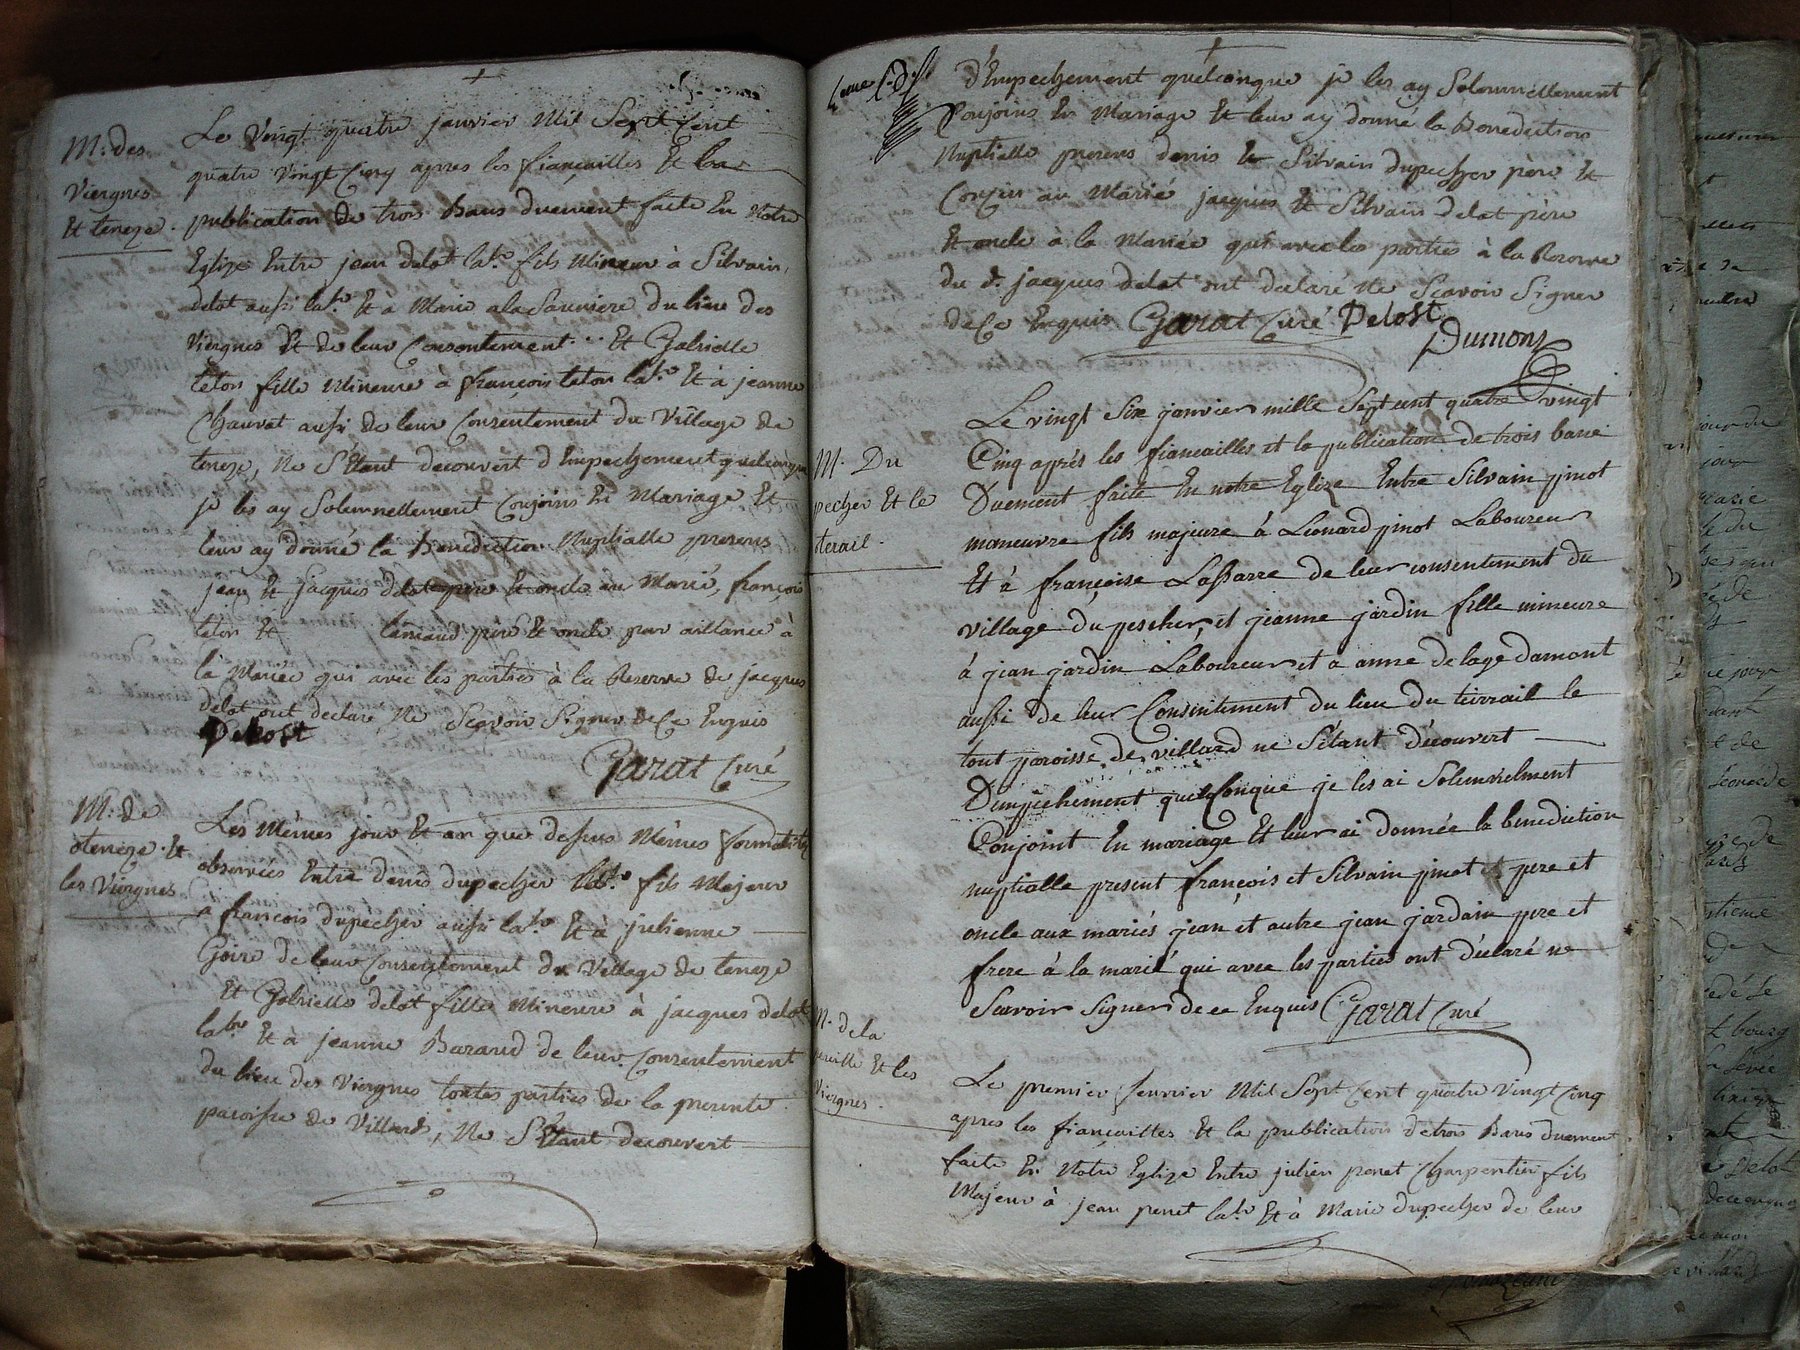 M: des
Viergnes
Et teneze.
Le Vingt quatre janvier Mil Sept Cent
quatre Vingt Cinq apres les fiançailles Et la
publication de trois Bans duement faite En Notre
Eglize Entre jean delot lab.r fils Mineur à Silvain
delot aussi lab.r Et à Marie alasauniere du lieu des
Viergnes Et de leur Consentement Et Gabrielle
teton fille Mineure à françois teton lab.r Et à jeanne
Chauvet aussi de leur Consentement du Village de
teneze, Ne S'Etant decouvert d'Empechement quelconque
je les ay Solemnellement Conjoins En Mariage Et
leur ay donné la Benediction Nuptialle presens
jean Et jacques delot pere Et oncle au Marié, françois
teton Et lamaud père Et oncle par aillance à
la Mariée qui avec les parties à la Reserve de jacques
delot ont declaré Ne Scavoir Signer de Ce Enquis
Delost
Garat Curé
M: de
teneze Et
les Viergnes
Les Mêmes jour Et an que dessus Mêmes formalités
observées Entre denis dupecher lab.r fils Majeur
a françois dupecher aussi lab.r Et à julienne
Goire de leur Consentement du Village de teneze
Et Gabrielle delot fille Mineure à jacques delot
lab.r Et à jeanne Baraud de leur Consentement
du lieu des Viergnes toutes parties de la presente
paroisse de Villard, Ne S'Etant decouvert
d'Empechement quelconque je les ay Solemnellement
Conjoins En Mariage Et leur ay donné la Benediction
Nuptialle presens denis Et Silvain dupecher père Et
Cousin au Marié jacques Et Silvain delot père
Et oncle à la Mariée qui avec les parties à la Reserve
du d. jacques delot ont declaré Ne Scavoir Signer
de Ce Enquis Garat Curé Delost
Dumons
M. Du
pecher Et le
terail.
Le vingt Six janvier mille Sept cent quatre vingt
Cinq aprés les fiancailles et la publication de trois bans
Duement faite En notre Eglize Entre Silvain pinot
maneuvre fils majeure à Lionard pinot Laboureur
Et à françoise Lassarre de leur consentement du
village du pescher et jeanne jardin fille mineure
à jean jardin Laboureur et a anne delage damont
aussi de leur Consintement du lieu du teirrail le
tout paroisse de villard ne Sétant découvert
Dempêchement quelconque je les ai Solemnelment
Conjoint En mariage Et leur ai donnée la benediction
nuptialle present françois et Silvain pinot pere et
oncle aux mariés jean et autre jean jardain pere et
frere à la marié qui avec les parties ont déclaré ne
Scavoir Signer de ce Enquis Garat Curé
M. de la
Et les
Viergnes.
Le premier fevrier Mil Sept Cent quatre Vingt Cinq
apres les fiançailles Et la publication de trois Bans duement
faite En Notre Eglize Entre julien penet Charpentier fils
Majeur à jean penet lab.r Et à Marie dupecher de leur